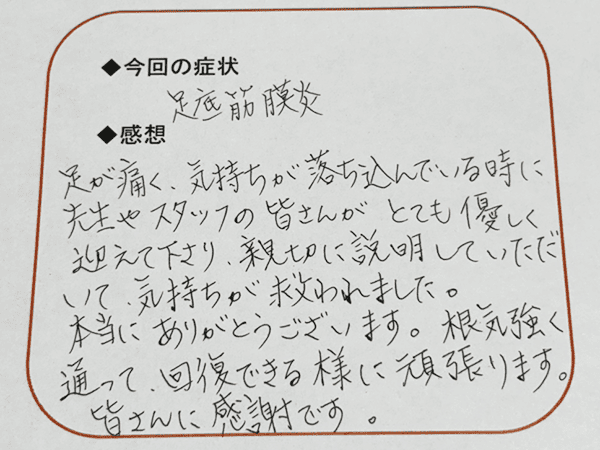 ◆今回の症状
足底筋膜炎
◆感想
足が痛く、気持ちが落ち込んでいる時に
先生やスタッフの皆さんがとても優しく
迎えて下さり、親切に説明していただ
いて、気持ちが救われました。
本当にありがとうございます。根気強く
通って、回復できる様に頑張ります。
皆さんに感謝です。